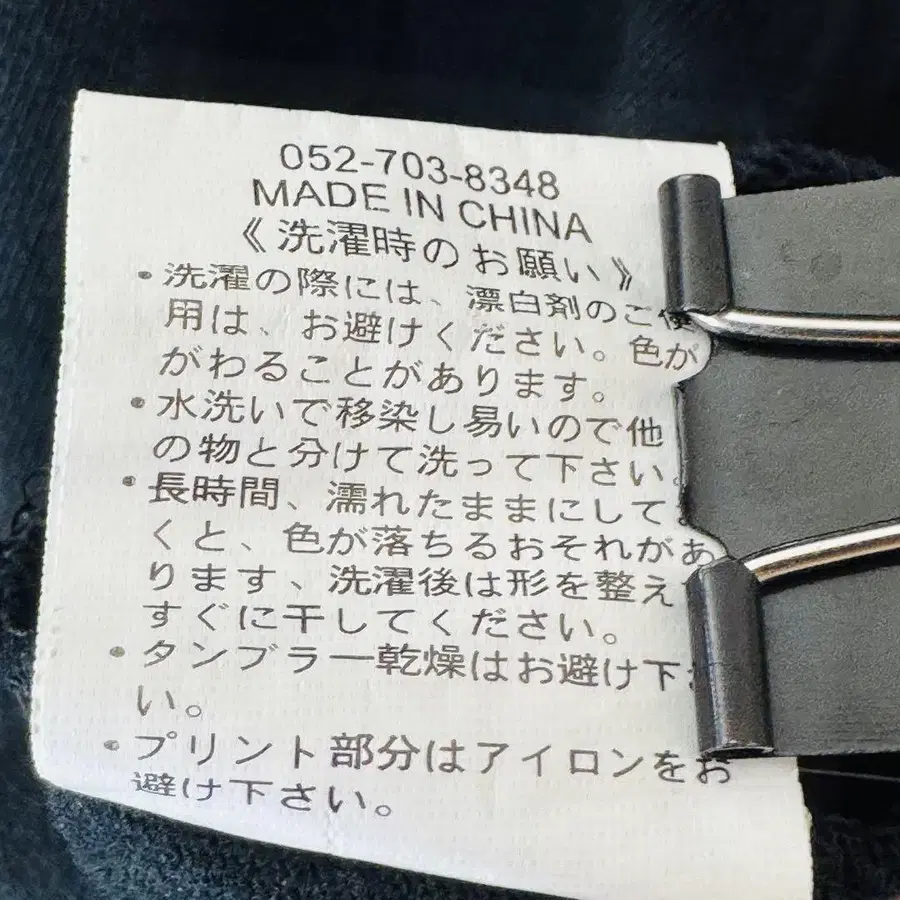 052-703-8348
MADE IN CHINA
《洗濯時のお願い》
・洗濯の際には、漂白剤のご使
用は、お避けください。色が
がわることがあります。
・水洗いで移染し易いので他
の物と分けて洗って下さい。
・長時間、濡れたままにして
くと、色が落ちるおそれがあ
ります、洗濯後は形を整え
すぐに干してください。
・タンブラー乾燥はお避け下さ
い。
・プリント部分はアイロンをお
避け下さい。